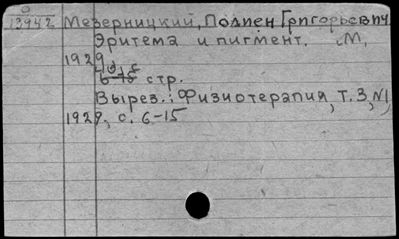 О
13942 Мезерницкий, Полиен Григорьевич
Эритема и пигмент. М.
1929,
6-15 стр.
Вырез.: Физиотерапия, Т. 3, №1,
1929, с. 6-15